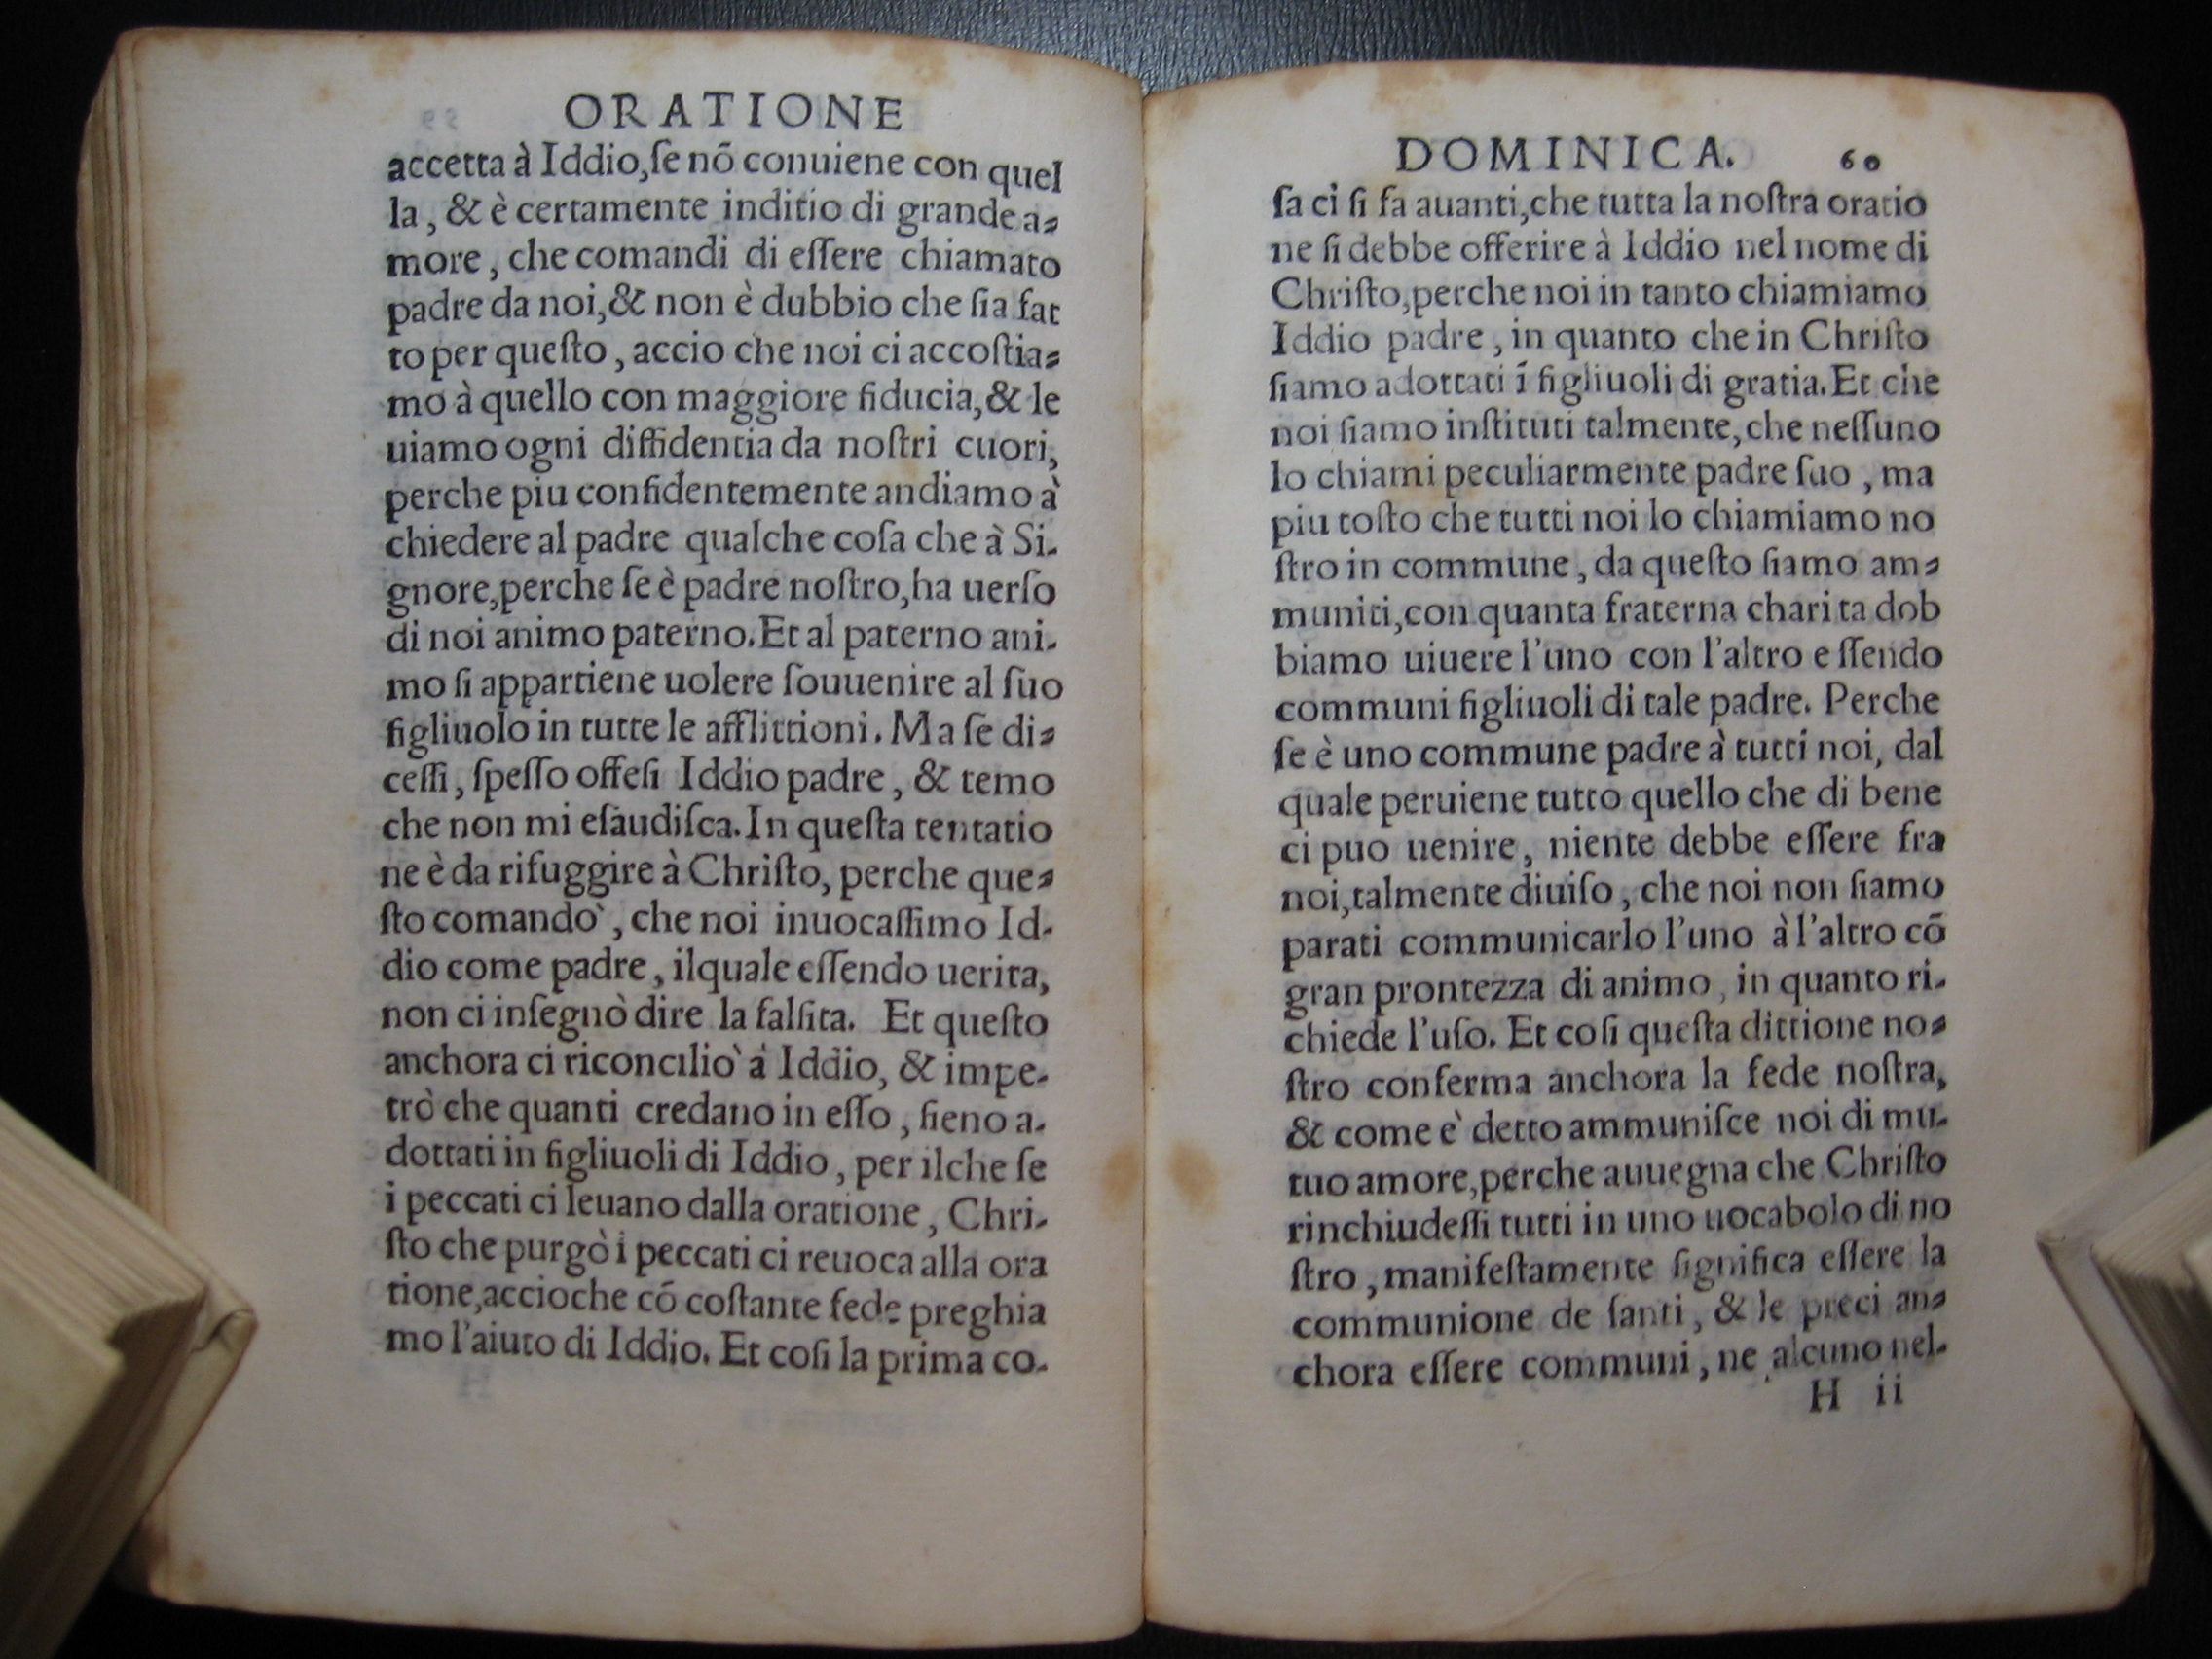 ORATIONE
accetta à Iddio,ſe nõ conuiene con quel
la, & è certamente inditio di grande a⸗
more, che comandi di eſſere chiamato
padre da noi,& non è dubbio che ſia fat
to per queſto, accio che noi ci accoſtia⸗
mo à quello con maggiore fiducia,& le
uiamo ogni diffidentia da noſtri cuori,
perche piu confidentemente andiamo à
chiedere al padre qualche coſa che à Si-
gnore,perche ſe è padre noſtro,ha uerſo
di noi animo paterno.Et al paterno ani-
mo ſi appartiene uolere ſouuenire al ſuo
figliuolo in tutte le afflittioni. Ma ſe di⸗
ceſſi, ſpeſſo offeſi Iddio padre, & temo
che non mi eſaudiſca.In queſta tentatio
ne è da rifuggire à Chriſto, perche que⸗
ſto comandò, che noi inuocaſſimo Id-
dio come padre, ilquale eſſendo uerita,
non ci inſegnò dire la falſita. Et queſto
anchora ci riconciliò à Iddio, & impe-
trò che quanti credano in eſſo, ſieno a-
dottati in figliuoli di Iddio, per ilche ſe
i peccati ci leuano dalla oratione, Chri-
ſto che purgò i peccati ci reuoca alla ora
tione,accioche cõ coſtante fede preghia
mo l'aiuto di Iddio. Et coſi la prima co-
DOMINICA. 60
ſa ci ſi fa auanti,che tutta la noſtra oratio
ne ſi debbe offerire à Iddio nel nome di
Chriſto,perche noi in tanto chiamiamo
Iddio padre, in quanto che in Chriſto
ſiamo adottati ĩ figliuoli di gratia.Et che
noi ſiamo inſtituti talmente,che neſſuno
lo chiami peculiarmente padre ſuo, ma
piu toſto che tutti noi lo chiamiamo no
ſtro in commune, da queſto ſiamo am⸗
muniti,con quanta fraterna charita dob
biamo uiuere l'uno con l'altro eſſendo
communi figliuoli di tale padre. Perche
ſe è uno commune padre à tutti noi, dal
quale peruiene tutto quello che di bene
ci puo uenire, niente debbe eſſere fra
noi,talmente diuiſo, che noi non ſiamo
parati communicarlo l'uno à l'altro cõ
gran prontezza di animo, in quanto ri-
chiede l'uſo. Et coſi queſta dittione no⸗
ſtro conferma anchora la fede noſtra,
& come è detto ammuniſce noi di mu-
tuo amore,perche auuegna che Chriſto
rinchiudeſſi tutti in uno uocabolo di no
ſtro, manifeſtamente ſignifica eſſere la
communione de ſanti, & le preci an⸗
chora eſſere communi, ne alcuno nel-
H ii